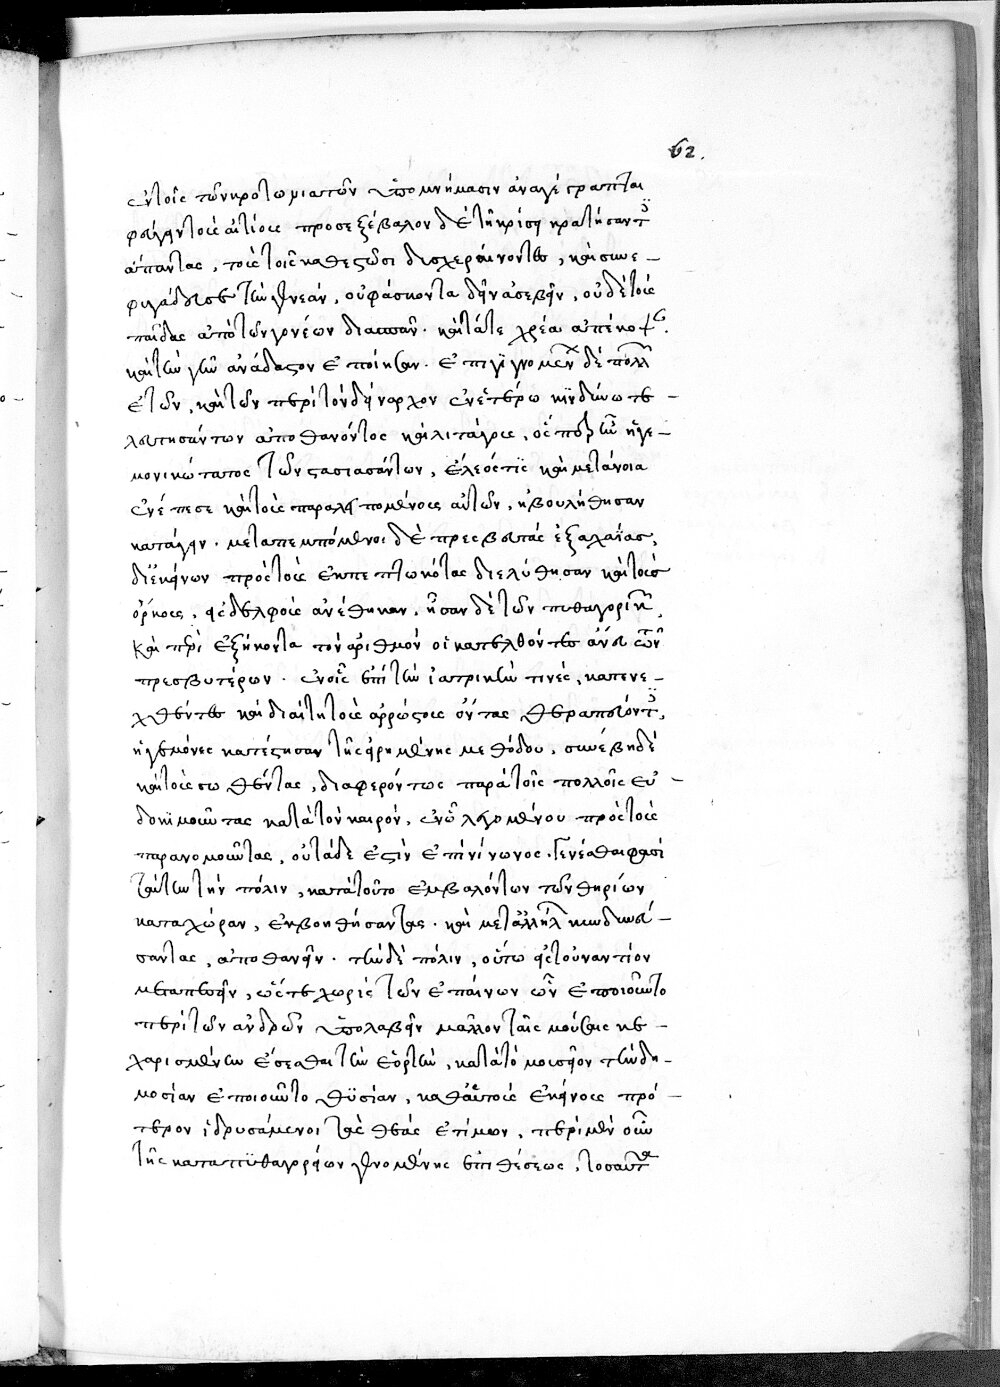 62.
ἐν τοῖς τῶν κροτωνιατῶν ὑπομνήμασιν ἀναγέγραπται
φεύγειν τοὺς αἰτίους προσεξέβαλον δὲ τὴν κρίσιν κρατήσαντες
ἅπαντας, τοὺς τοῖς καθεστῶσι δυσχεραίνοντας, καὶ συνε-
φυγάδευσαν τὴν γενεάν, οὐ φάσκοντα δεῖν ἀσεβεῖν, οὐδὲ τοὺς
παῖδας ἀπὸ τῶν γονέων διασπᾶν. καὶ τά τε χρέα ἀπέκοψαν.
καὶ τὴν γῆν ἀνάδαστον ἐποίησαν. ἐπιγιγνομένων δὲ πολλῶν
ἐτῶν, καὶ τῶν περὶ τὸν δείναρχον ἐν ἑτέρῳ κινδύνῳ τε-
λευτησάντων ἀποθανόντος καὶ λιτάγους, ὅς περ ἦν ἡγε-
μονικώτατος τῶν στασιασάντων, ἔλεός τις καὶ μετάνοια
ἐνέπεσε καὶ τοὺς παραλειπομένους αὐτῶν, ἠβουλήθησαν
κατάγειν. μεταπεμπόμενοι δὲ πρεσβευτὰς ἐξ ἀχαΐας,
δι' ἐκείνων πρὸς τοὺς ἐκπεπτωκότας διελύθησαν καὶ τοὺς
ὅρκους, εἰς δελφοὺς ἀνέθηκαν, ἦσαν δὲ τῶν πυθαγορείων
καὶ περὶ ἑξήκοντα τὸν ἀριθμὸν οἱ κατελθόντες ἄνευ τῶν
πρεσβυτέρων. ἐν οἷς ἐπὶ τὴν ἰατρικήν τινές, κατενε-
χθέντες καὶ διαίτῃ τοὺς ἀρρώστους ὄντας θεραπεύοντες,
ἡγεμόνες κατέστησαν τῆς εἰρημένης μεθόδου, συνέβη δὲ
καὶ τοὺς σωθέντας, διαφερόντως παρὰ τοῖς πολλοῖς εὐ-
δοκιμοῦντας κατὰ τὸν καιρόν, ἐν ᾧ λεγομένου πρὸς τοὺς
παρανομοῦντας, οὐ τάδε ἐστὶν ἐπὶ νίνωνος. γενέσθαι φασὶ
ταύτην τὴν πόλιν, κατὰ τοῦτο ἐμβαλόντων τῶν θηρίων
κατὰ χώραν, ἐκβοηθήσαντας. καὶ μετ' ἀλλήλων κινδυνεύ-
σαντας, ἀποθανεῖν. τὴν δὲ πόλιν, οὕτω εἰς τοὐναντίον
μεταπεσεῖν, ὥστε χωρὶς τῶν ἐπαίνων ὧν ἐποιοῦντο
περὶ τῶν ἀνδρῶν ὑπολαβεῖν μᾶλλον ταῖς μούσαις κε-
χαρισμένην ἔσεσθαι τὴν ἑορτήν, κατὰ τὸ μουσεῖον τὴν δη-
μοσίαν ἐποιοῦντο θυσίαν, καθ' αὑτοὺς ἐκείνους πρό-
τερον ἱδρυσάμενοι τὰς θεὰς ἐτίμων, περὶ μὲν οὖν
τῆς κατὰ πυθαγορείων γενομένης ἐπιθέσεως, τοσαῦτα